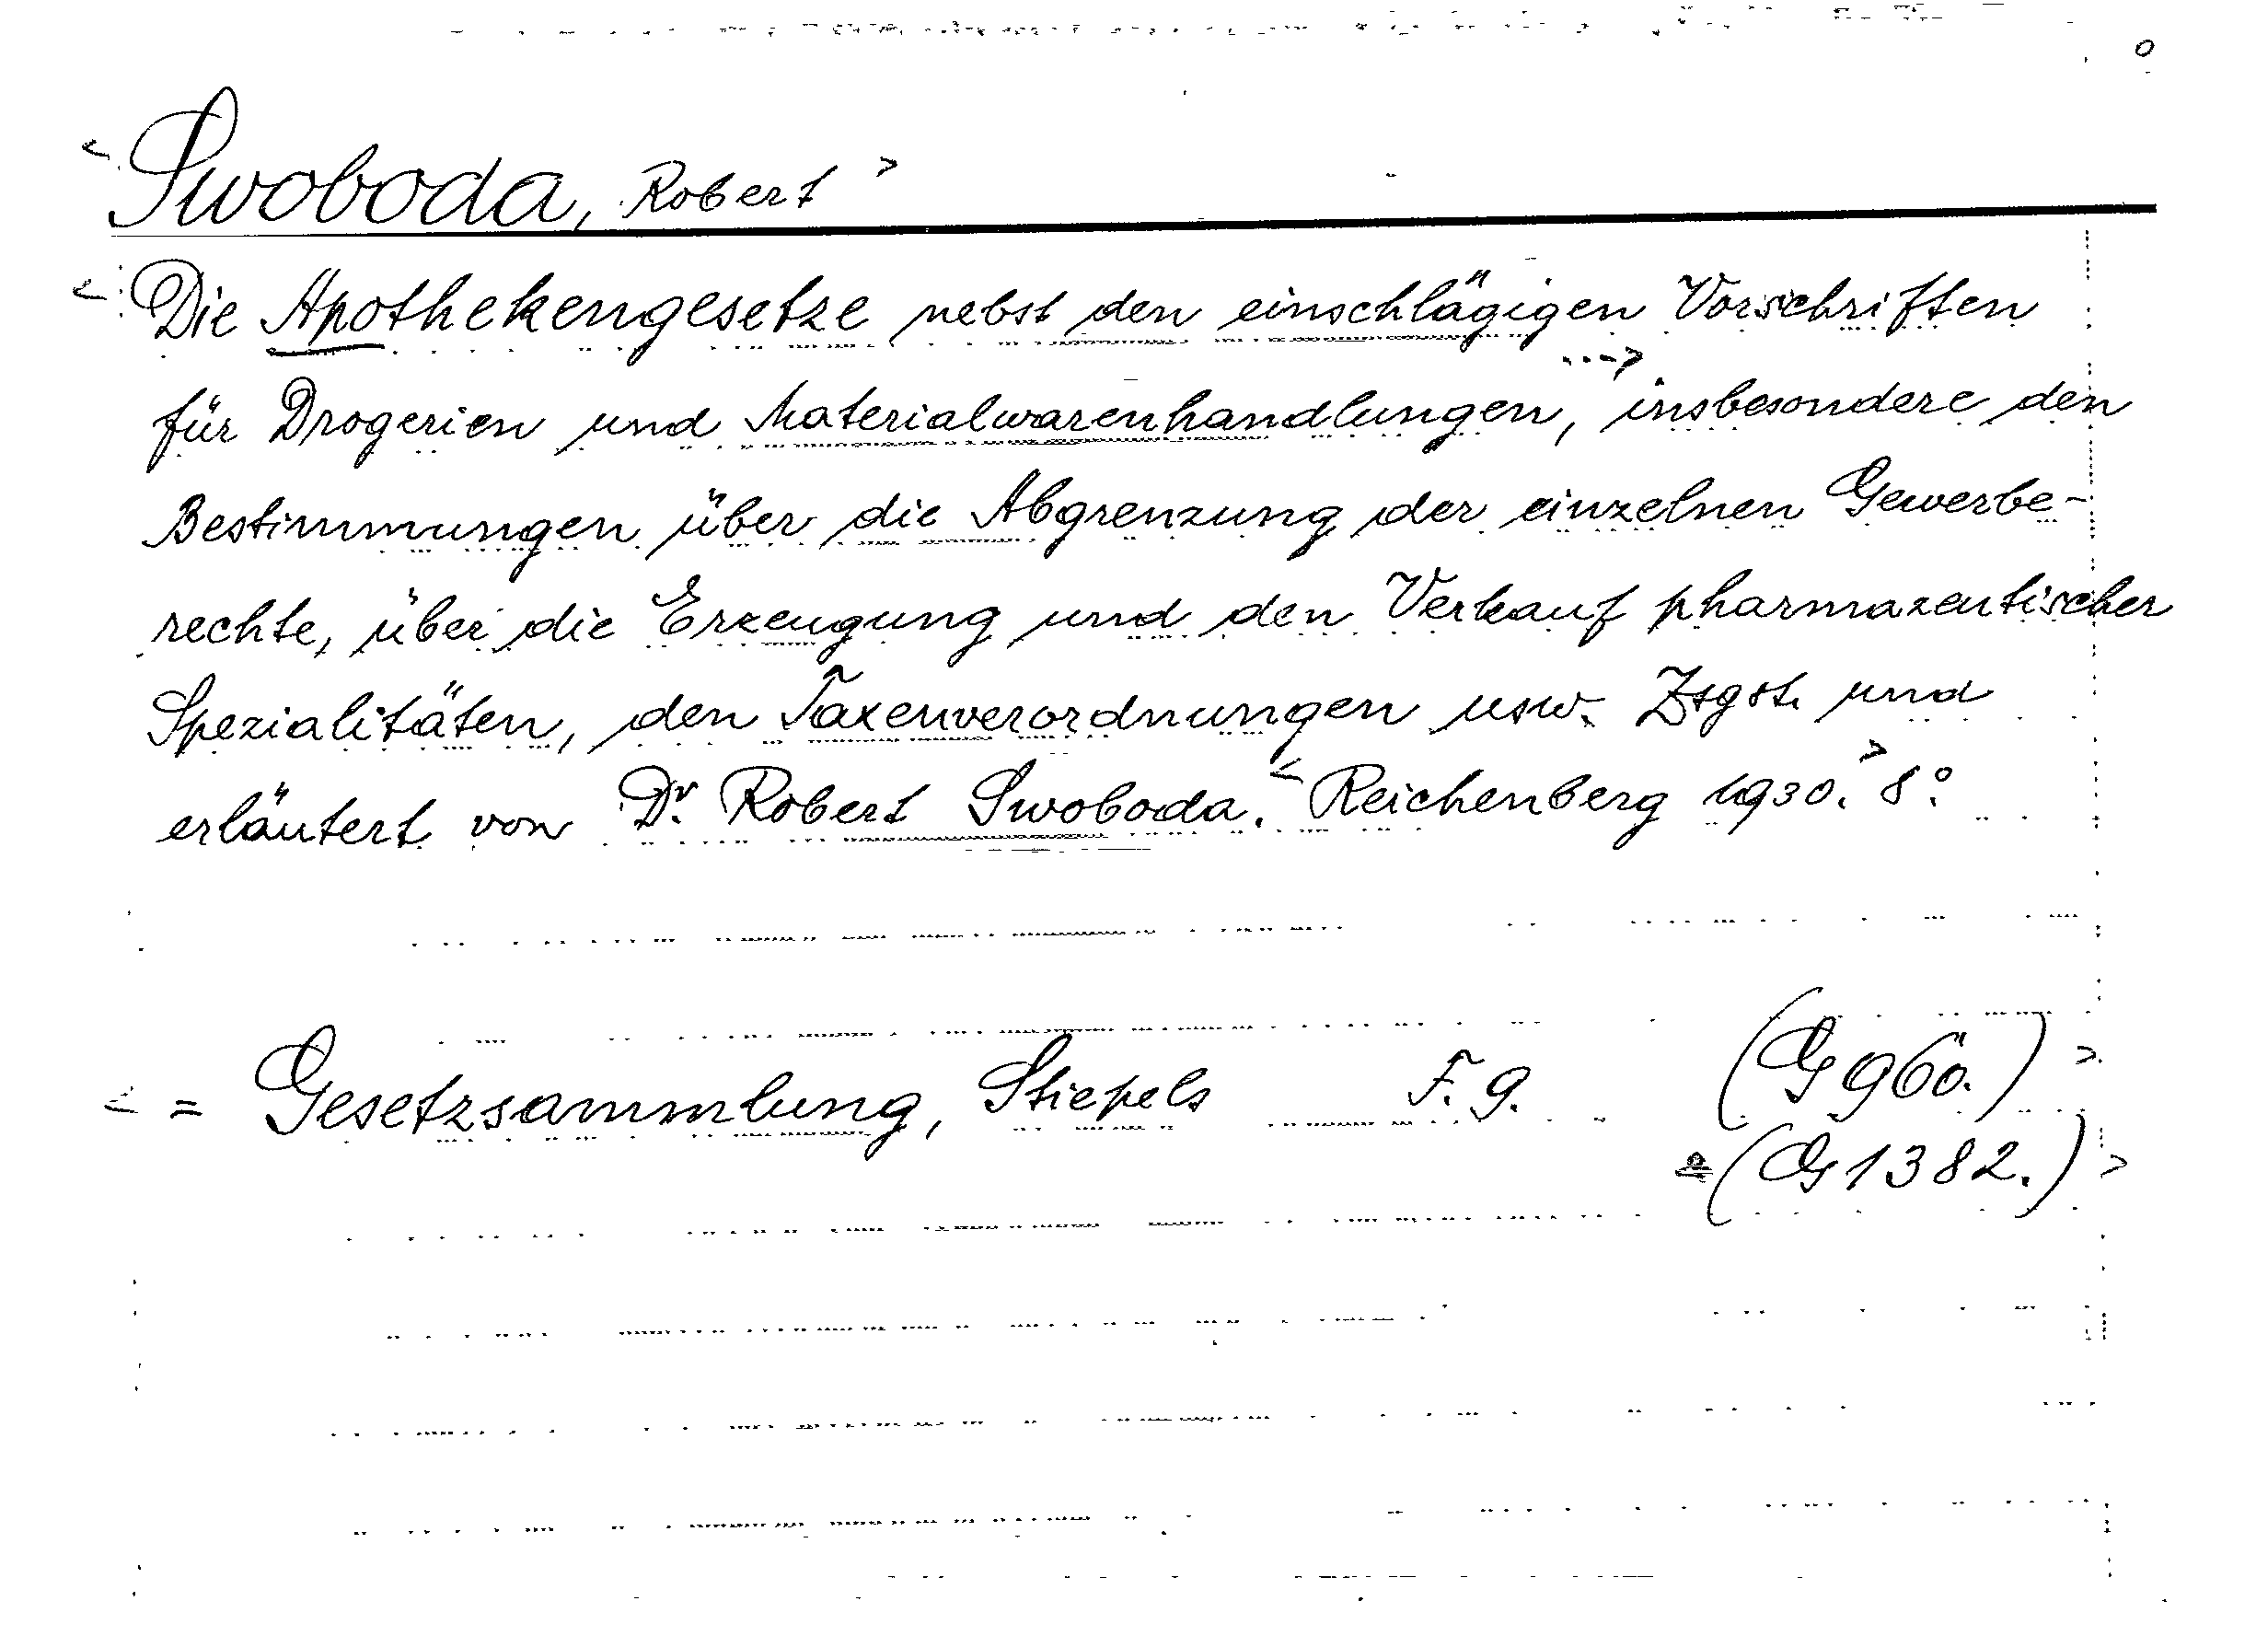 < Swoboda, Robert >
< Die Apothekengesetze nebst den einschlägigen Vorschriften
für Drogerien und Materialwarenhandlungen, ...> insbesondere den
Bestimmungen über die Abgrenzung der einzelnen Gewerbe-
rechte, über die Erzeugung und den Verkauf pharmazeutischer
Spezialitäten, den Taxenverordnungen usw. Zsgst. und
erläutert von Dr. Robert Swoboda. < Reichenberg 1930. > 8°.
< = Gesetzsammlung, Stiepels F. 9. (G 960.) >
(G 1382.) >